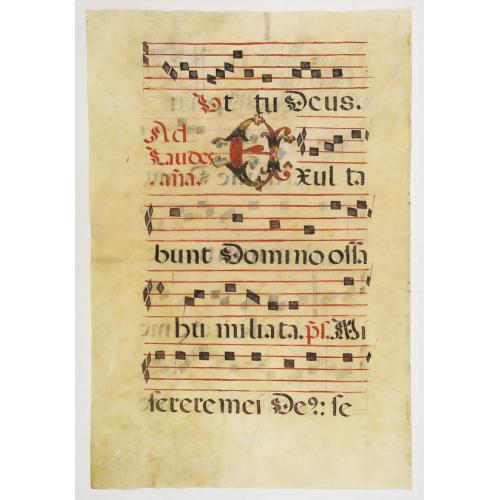 Vt tu Deus.
Ad
Laudes
aña. Exul ta
bunt Domino ossa
hu milia ta. ps. Mi
serere mei De9: se